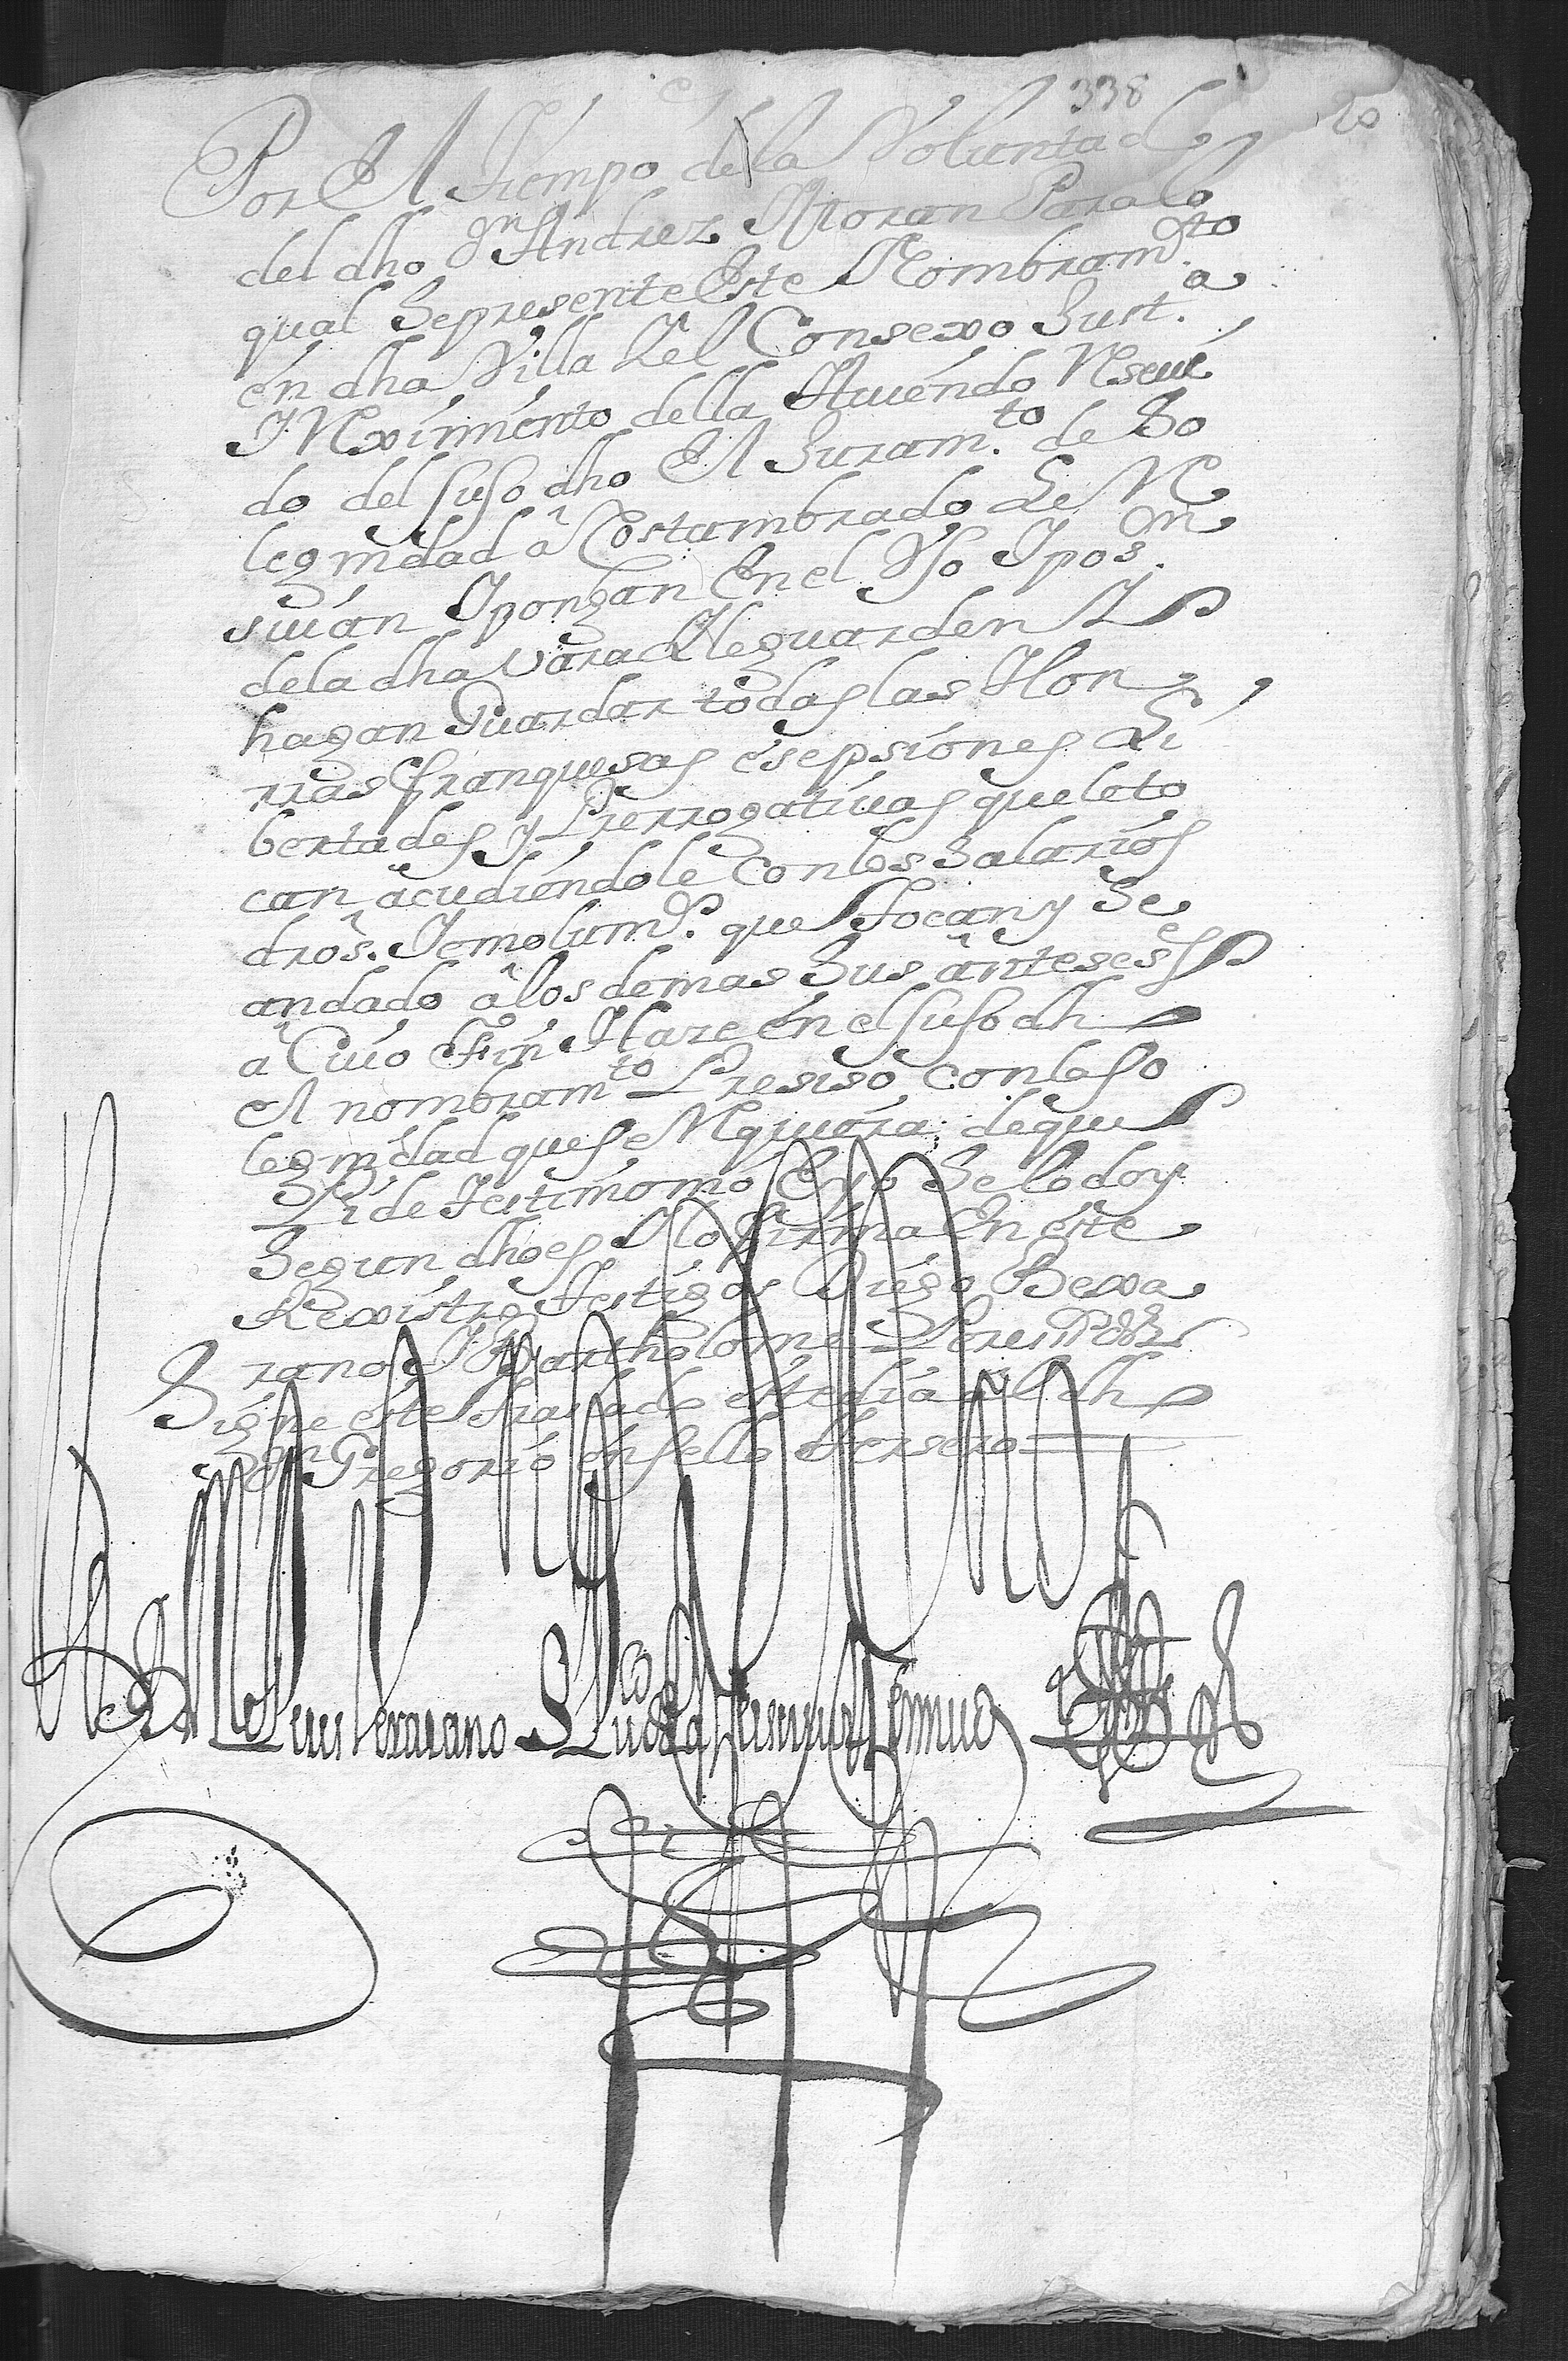 338
20
Por El Tiempo dela Voluntad
del dho Dn Andrez Moran Para lo
qual Sepresente Este Nombramto
en dha Villa Del Consexo Justa
I Reximiento della Auiendo Reseui
do del suso dho El Juramto de So
legnidad a Costumbrado Le Re
siuan I pongan En el Vso I posn
dela dha Vara I le guarden I
hagan Guardar todas las Hon
rras franquesas esepsiones Li
bertades y Prerrogatiuas que leto
can acudiendole Con los Salarios
dros. I emolumos. que Tocan y Se
an dado a los demas Sus anteseses
a Cuio Fin Haze en el suso dh
El nombramto Presiso con la So
legnidad que se Requiera: de que
Pide Testimonio E yo Se lo doy
Segun dho es I lo firma En este
Rexistro Testigos Diego Bexa
rano I Bartholome Peres
Signe este traslado este dia al dh
Dn Gregorio en sello Tersero